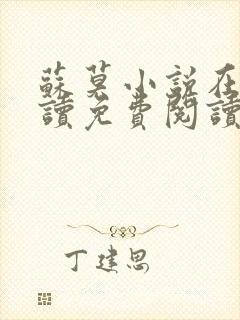 蘇莫小說在
讀免費閱讀
丁建思